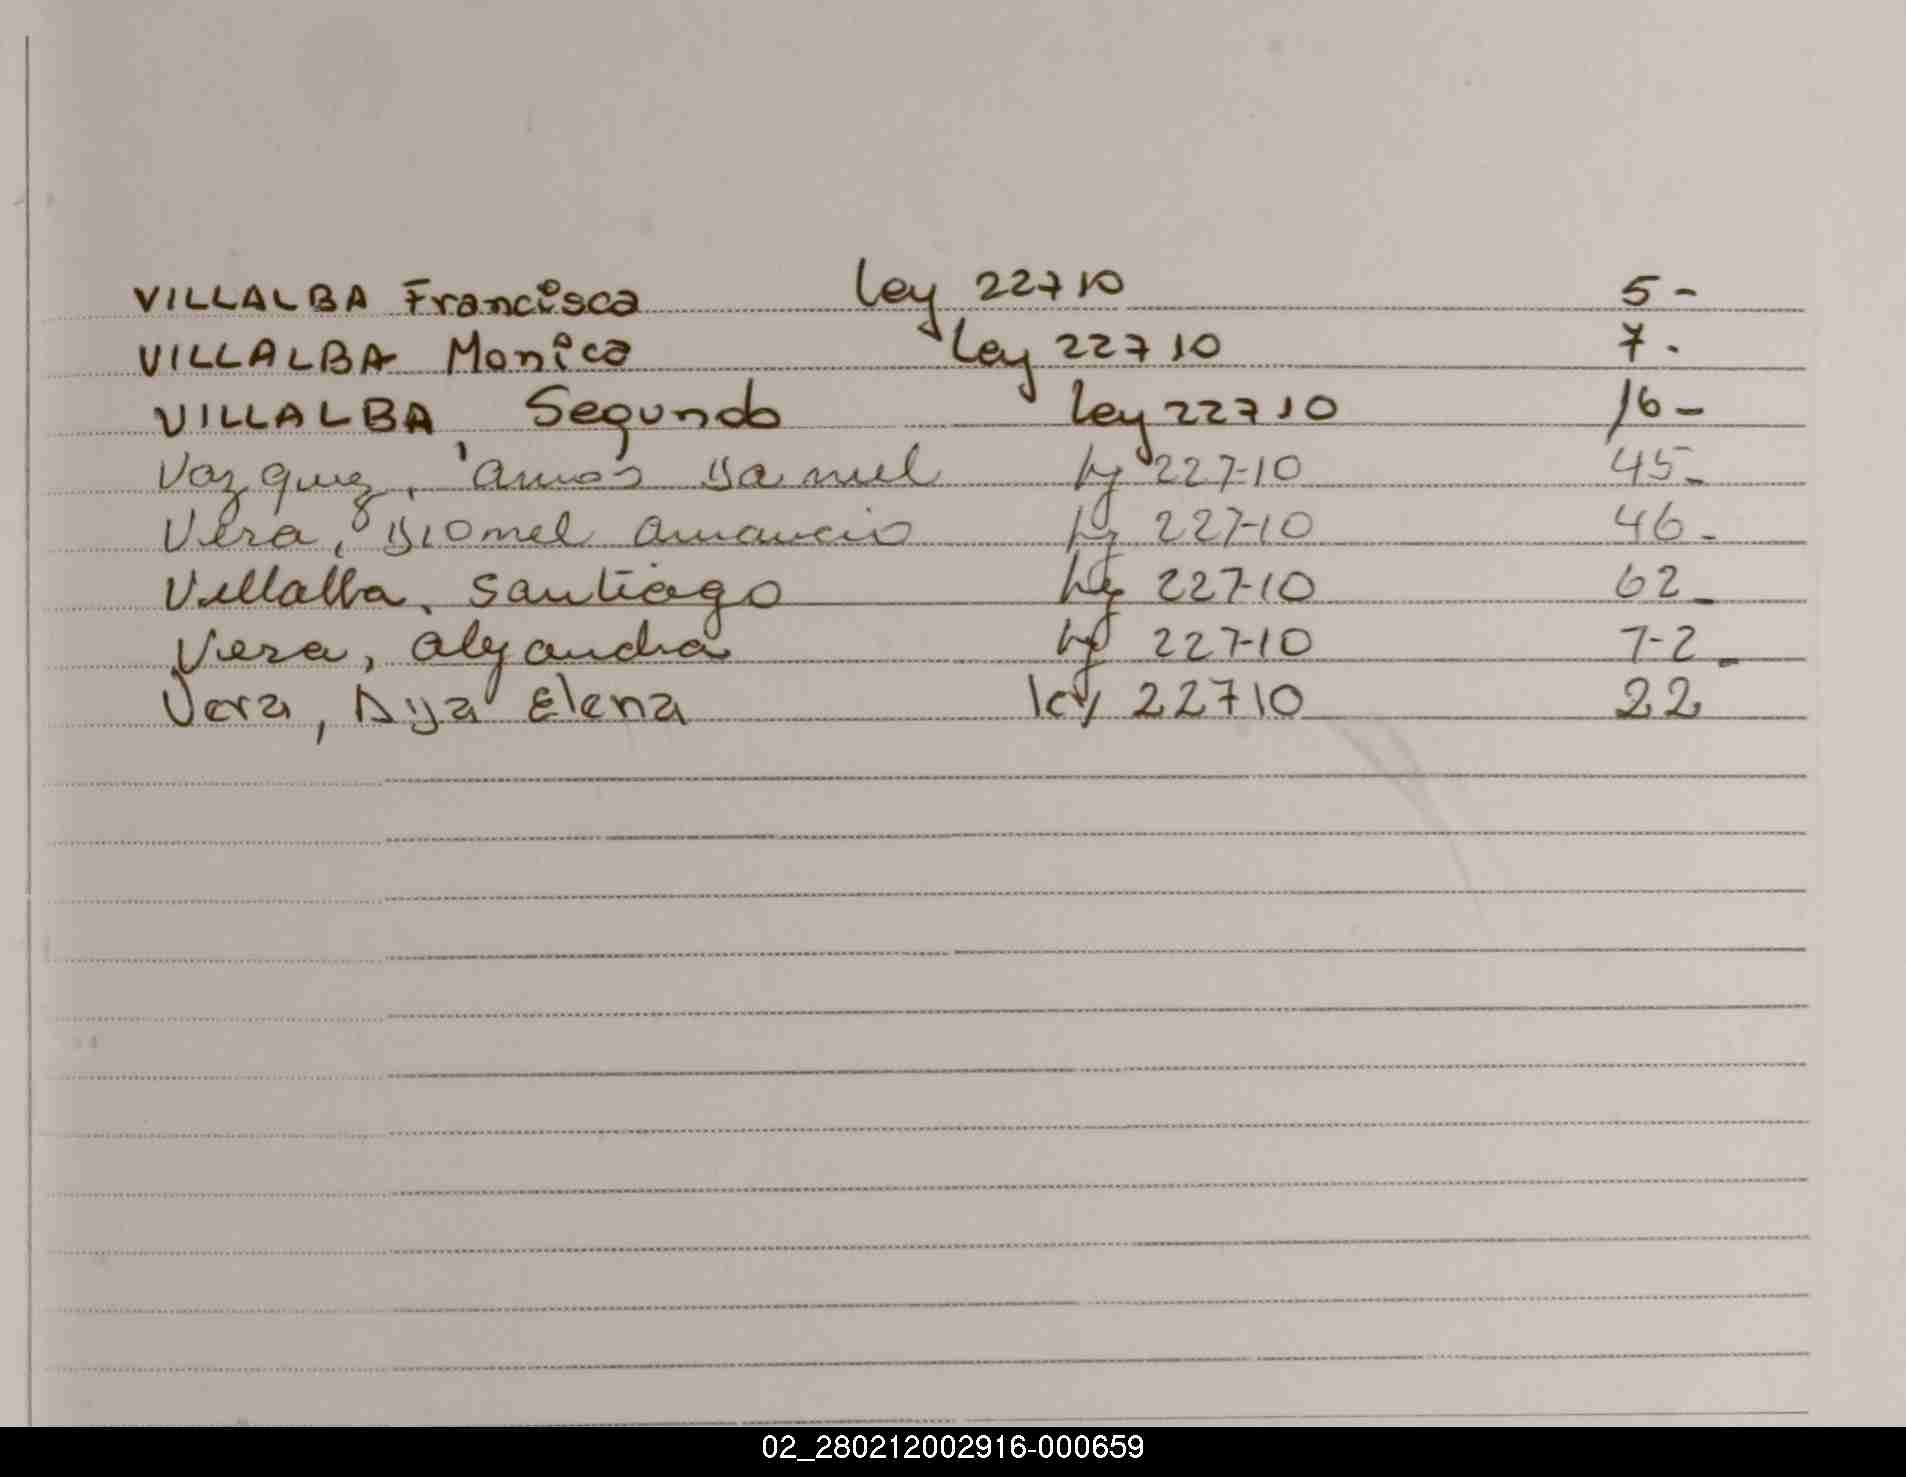 VILLALBA Francisca ley 22710 5-
VILLALBA Monica Ley 22710 7.
VILLALBA, Segundo ley 22710 16-
Vazquez, Amos Daniel ley 22710 45-
Vera, Dionel Amancio ley 22710 46-
Villalba, Santiago ley 22710 62-
Vera, Alejandra ley 22710 72-
Vera, Elena ley 22710 22
02_280212002916-000659